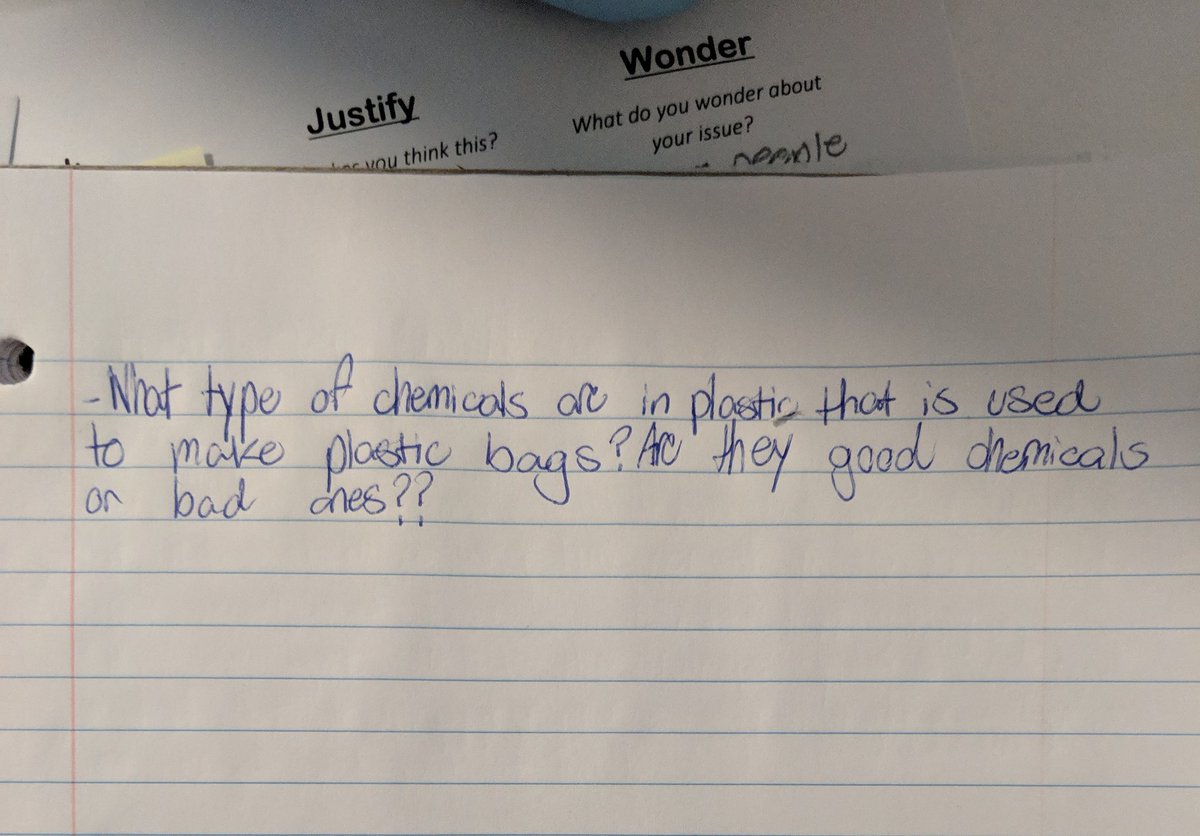 Wonder
Justify
What do you wonder about
your issue?
you think this?
- What type of chemicals are in plastic that is used
to make plastic bags? Are they good chemicals
or bad ones??